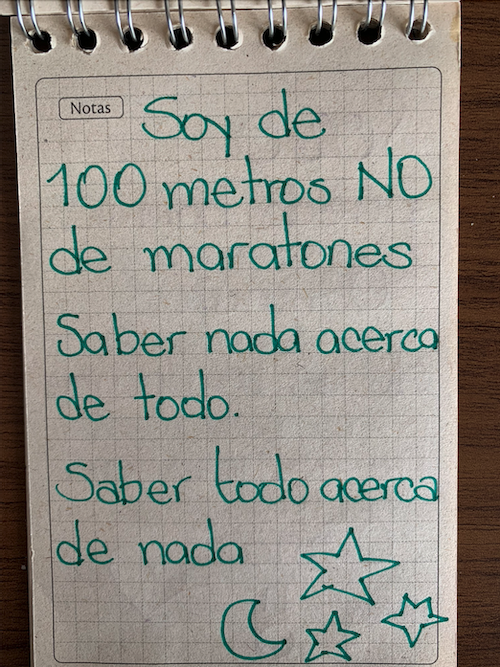 Notas
Soy de
100 metros NO
de maratones
Saber nada acerca
de todo.
Saber todo acerca
de nada